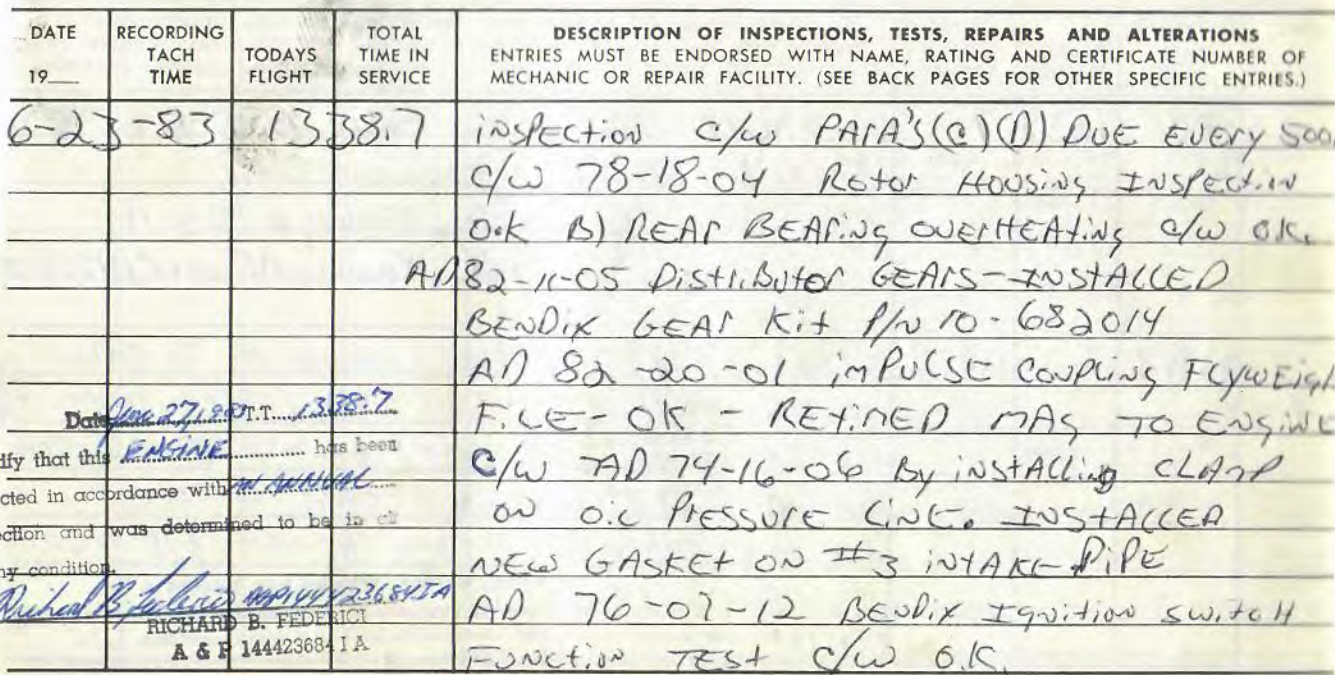 DATE RECORDING TOTAL
TACH TODAYS TIME IN
19__ TIME FLIGHT SERVICE
DESCRIPTION OF INSPECTIONS, TESTS, REPAIRS AND ALTERATIONS
ENTRIES MUST BE ENDORSED WITH NAME, RATING AND CERTIFICATE NUMBER OF
MECHANIC OR REPAIR FACILITY. (SEE BACK PAGES FOR OTHER SPECIFIC ENTRIES.)
6-23-83 1338.7 inspection c/w PArA's (C)(D) DUE EVERY 500
C/W 78-18-04 Rotor Housing Inspection
O.K B) REAr BEAring OVErHEAting c/w O.K.
AD 82-11-05 Distributor GEArs - INSTALLED
BENDix GEAr Kit P/N 10-682014
AD 82-20-01 imPULSE Coupling FlyWEigh
FiLE - OK - REtiMED MAG TO ENGINE
C/W AD 74-16-06 By iNStAlling CLAmp
ON OiL PrESSUrE LiNE. INSTALLED
NEW GASKEt ON #3 iNtAKE PiPE
AD 76-07-12 BENDix Ignition Switch
FUNCtioN TESt C/W O.K.
Date June 27, 1983 T.T. 1338.7
ify that this ENGINE has been
cted in accordance with an ANNUAL
ection and was determined to be in
hy condition.
Richard B. Federici A&P144423684IA
RICHARD B. FEDERICI
A & P 144423684 I A